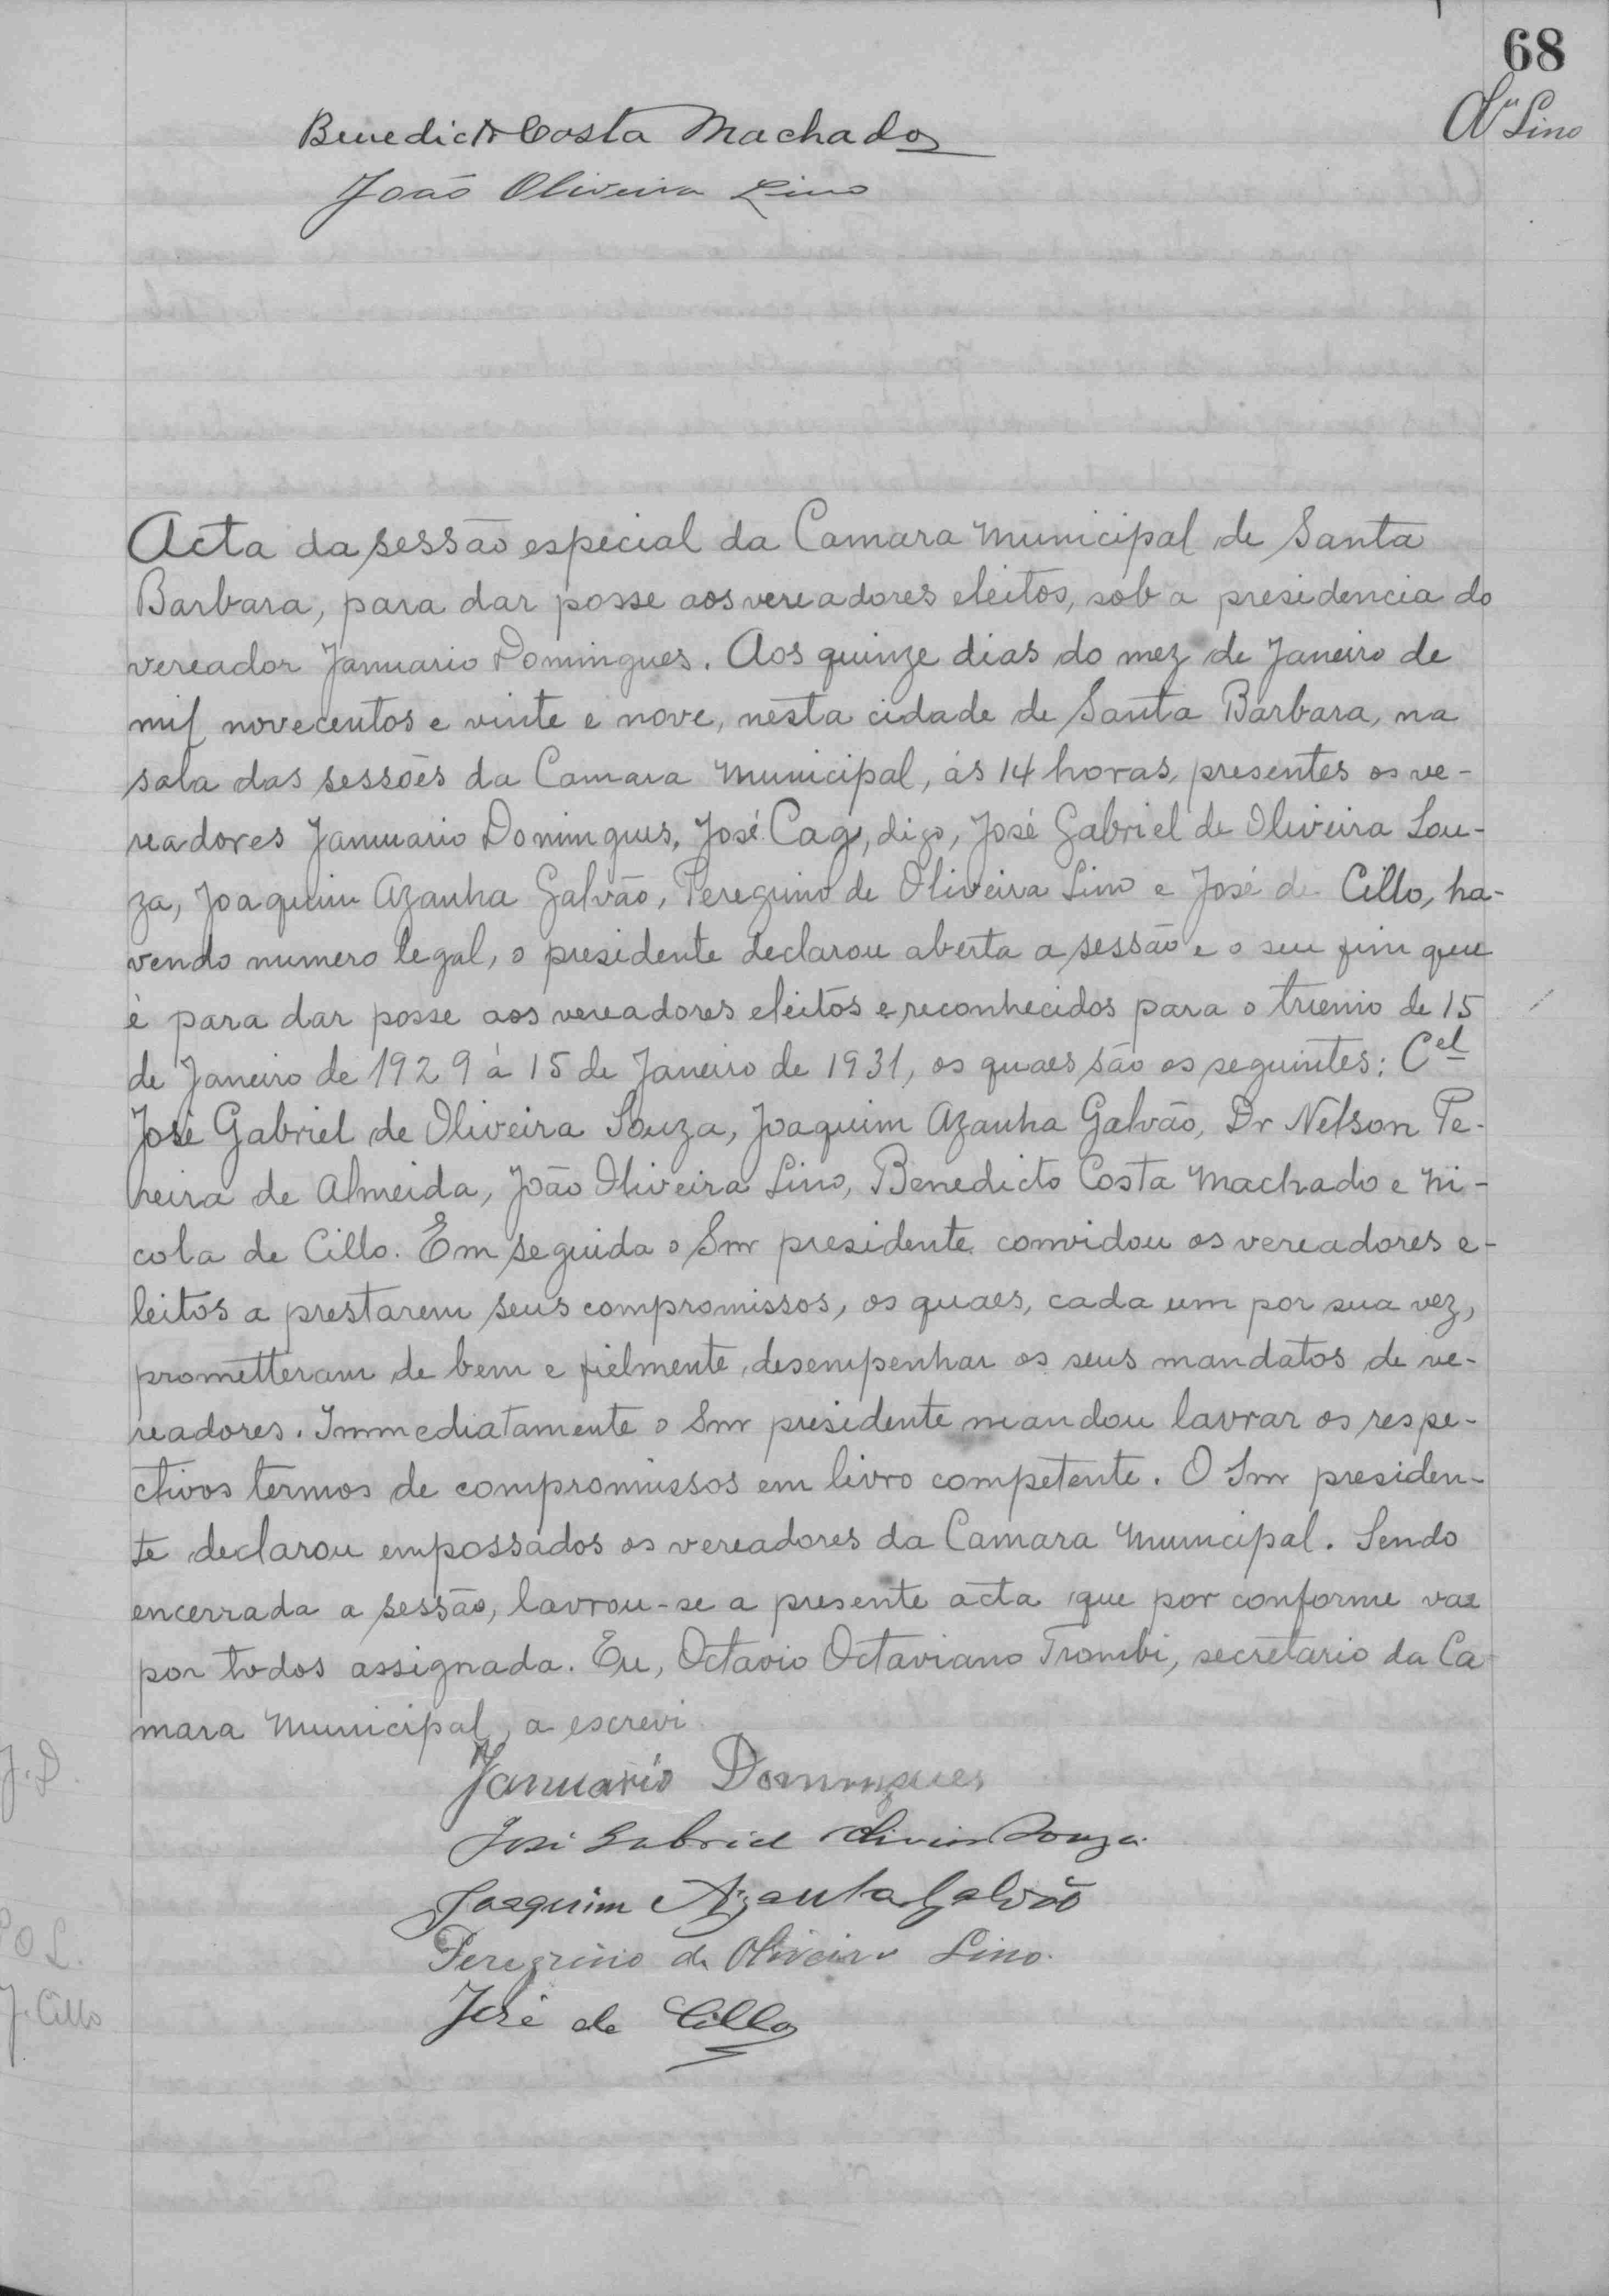 68
Lino
Benedicto Costa Machado
João Oliveira Lino
Acta da sessão especial da Camara Municipal de Santa
Barbara, para dar posse aos vereadores eleitos, sob a presidencia do
vereador Januario Domingues. Aos quinze dias do mez de Janeiro de
mil novecentos e vinte e nove, nesta cidade de Santa Barbara, na
sala das sessões da Camara Municipal, ás 14 horas, presentes os ve-
readores Januario Domingues, José Cag, digo, José Gabriel de Oliveira Sou-
za, Joaquim Azanha Galvão, Peregrino de Oliveira Lino e José de Cillo, ha-
vendo numero legal, o presidente declarou aberta a sessão e o seu fim que
é para dar posse aos vereadores eleitos e reconhecidos para o trienio de 15
de Janeiro de 1929 á 15 de Janeiro de 1931, os quaes são os seguintes: Cel
José Gabriel de Oliveira Souza, Joaquim Azanha Galvão, Dr Nelson Pe-
reira de Almeida, João Oliveira Lino, Benedicto Costa Machado e Ni-
cola de Cillo. Em seguida o Snr presidente convidou os vereadores e-
leitos a prestarem seus compromissos, os quaes, cada um por sua vez,
prometteram de bem e fielmente desempenhar os seus mandatos de ve-
readores. Immediatamente o Snr presidente mandou lavrar os respe-
ctivos termos de compromissos em livro competente. O Snr presiden-
te declarou empossados os vereadores da Camara Municipal. Sendo
encerrada a sessão, lavrou-se a presente acta que por conforme vae
por todos assignada. Eu, Octavio Octaviano Trombi, secretario da Ca-
mara Municipal, a escrevi.
J. D.
Januario Domingues
José Gabriel Oliveira Souza
Joaquim Azanha Galvão
P O L.
Peregrino de Oliveira Lino.
J. Cillo
José de Cillo